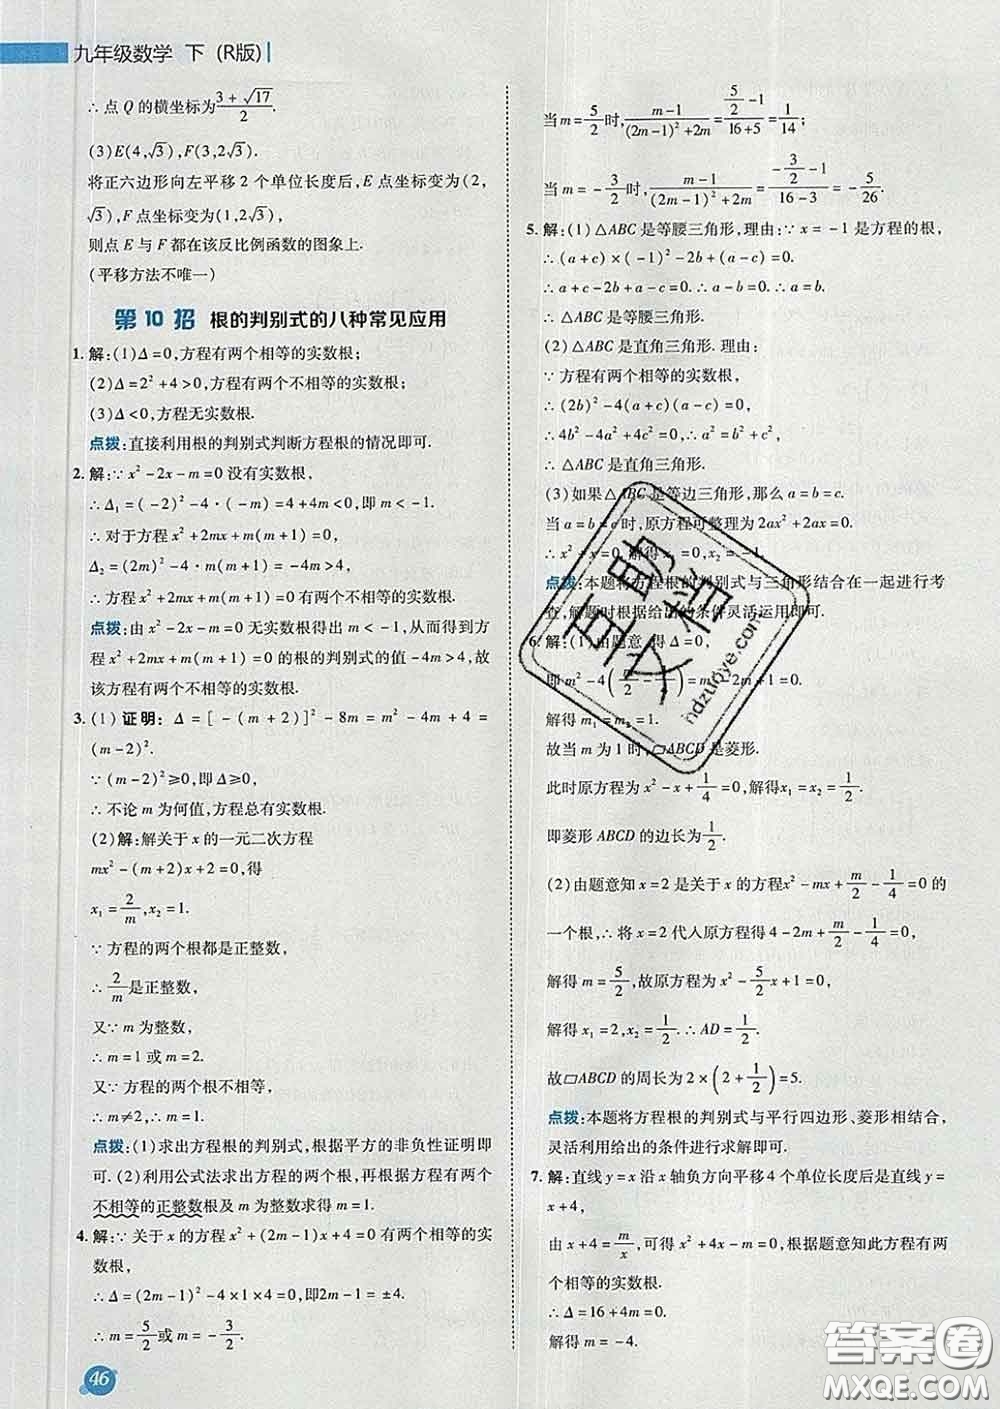 九年级数学 下 (R版)
∴点 Q 的横坐标为(3+√17)/2.
(3)E(4,√3),F(3,2√3).
将正六边形向左平移 2 个单位长度后,E 点坐标变为(2,
√3),F 点坐标变为(1,2√3),
则点 E 与 F 都在该反比例函数的图象上.
(平移方法不唯一)
第 10 招 根的判别式的八种常见应用
1. 解:(1)Δ=0,方程有两个相等的实数根;
(2)Δ=2²+4>0,方程有两个不相等的实数根;
(3)Δ<0,方程无实数根.
点拨:直接利用根的判别式判断方程根的情况即可.
2. 解:∵x²-2x-m=0 没有实数根,
∴Δ₁=(-2)²-4·(-m)=4+4m<0,即 m<-1.
∴对于方程 x²+2mx+m(m+1)=0,
Δ₂=(2m)²-4·m(m+1)=-4m>4,
∴方程 x²+2mx+m(m+1)=0 有两个不相等的实数根.
点拨:由 x²-2x-m=0 无实数根得出 m<-1,从而得到方
程 x²+2mx+m(m+1)=0 的根的判别式的值-4m>4,故
该方程有两个不相等的实数根.
3. (1) 证明:Δ=[-(m+2)]²-8m=m²-4m+4=
(m-2)².
∵(m-2)²≥0,即Δ≥0,
∴不论 m 为何值,方程总有实数根.
(2)解:解关于 x 的一元二次方程
mx²-(m+2)x+2=0,得
x₁=2/m,x₂=1.
∵方程的两个根都是正整数,
∴2/m是正整数,
又∵m 为整数,
∴m=1 或 m=2.
又∵方程的两个根不相等,
∴m≠2,∴m=1.
点拨:(1)求出方程根的判别式,根据平方的非负性证明即
可.(2)利用公式法求出方程的两个根,再根据方程有两个
不相等的正整数根及 m 为整数求得 m=1.
4. 解:∵关于 x 的方程 x²+(2m-1)x+4=0 有两个相等的实
数根,
∴Δ=(2m-1)²-4×1×4=0,即2m-1=±4.
∴m=5/2或 m=-3/2.
当 m=5/2时,(m-1)/((2m-1)²+2m)=(5/2-1)/(16+5)=1/14;
当 m=-3/2时,(m-1)/((2m-1)²+2m)=(-3/2-1)/(16-3)=-5/26.
5. 解:(1)△ABC 是等腰三角形,理由:∵x=-1 是方程的根,
∴(a+c)×(-1)²-2b+(a-c)=0.
∴a+c-2b+a-c=0.∴a-b=0.∴a=b.
∴△ABC 是等腰三角形.
(2)△ABC 是直角三角形. 理由:
∵方程有两个相等的实数根,
∴(2b)²-4(a+c)(a-c)=0,
∴4b²-4a²+4c²=0,∴a²=b²+c²,
∴△ABC 是直角三角形.
(3)如果△ABC 是等边三角形,那么 a=b=c.
当 a=b=c时,原方程可整理为 2ax²+2ax=0.
∴x²+x=0,解得 x₁=0,x₂=-1.
点拨:本题将方程根的判别式与三角形结合在一起进行考
查,解题时根据给出的条件灵活运用即可.
6. 解:(1)由题意,得Δ=0,
即 m²-4(m/2-1/4)=0,
解得 m₁=m₂=1.
故当 m 为 1 时,▱ABCD 是菱形.
此时原方程为 x²-x+1/4=0,解得x₁=x₂=1/2.
即菱形 ABCD 的边长为1/2.
(2)由题意知 x=2 是关于 x 的方程x²-mx+m/2-1/4=0 的
一个根,∴将 x=2 代入原方程得 4-2m+m/2-1/4=0,
解得 m=5/2,故原方程为 x²-5/2x+1=0,
解得 x₁=2,x₂=1/2.∴AD=1/2.
故▱ABCD 的周长为 2×(2+1/2)=5.
点拨:本题将方程根的判别式与平行四边形、菱形相结合,
灵活利用给出的条件进行求解即可.
7. 解:直线 y=x 沿 x 轴负方向平移 4 个单位长度后是直线 y=
x+4,
由 x+4=m/x,可得 x²+4x-m=0,根据题意知此方程有两
个相等的实数根.
∴Δ=16+4m=0.
解得 m=-4.
46
互助
文档
hdzuoye.com
答案圈
MXQE.COM